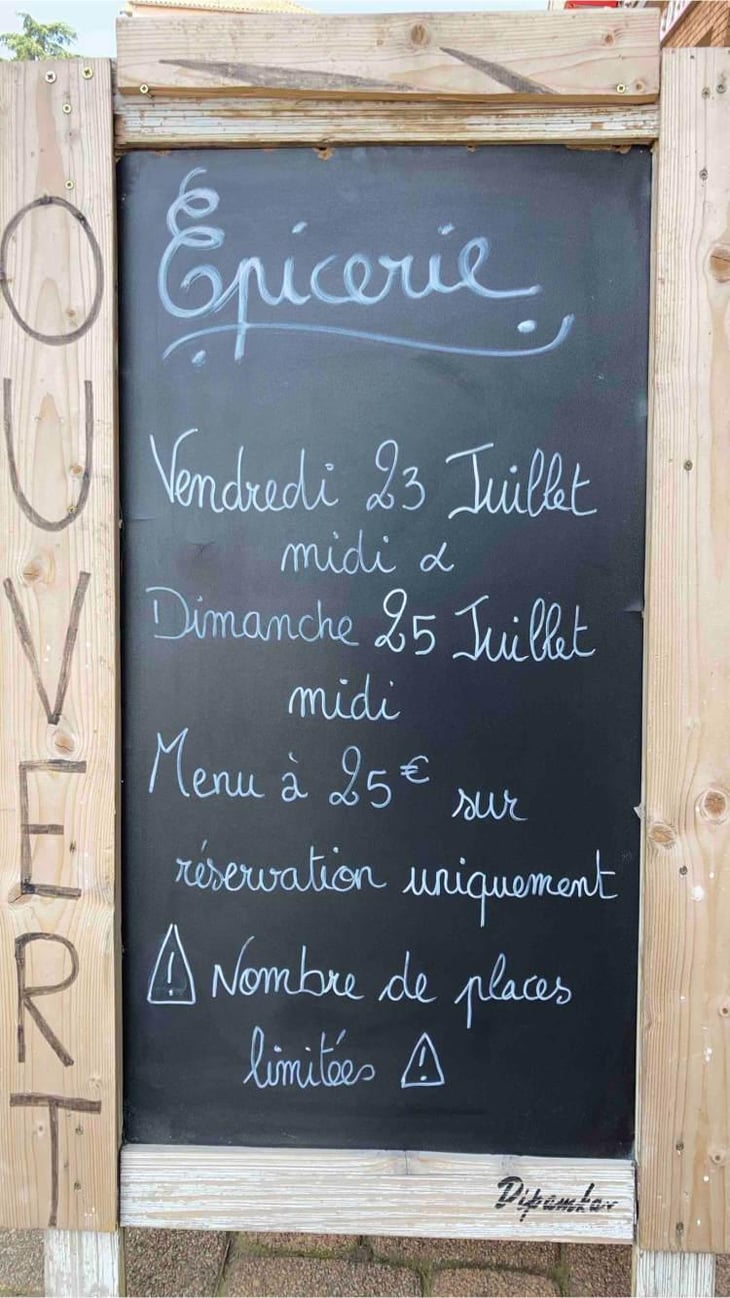 OUVERT
Épicerie
Vendredi 23 Juillet
midi &
Dimanche 25 Juillet
midi
Menu à 25€ sur
réservation uniquement
⚠ Nombre de places
limitées ⚠
Dipamkar